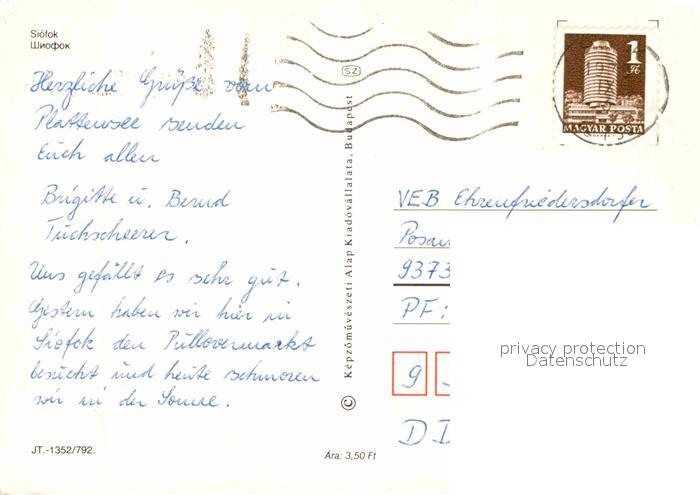 Siófok
Шиофок
Herzliche Grüße vom
Plattensee senden
Euch allen
Brigitte u. Bernd
Tuchscheerer.
Uns gefällt es sehr gut.
Gestern haben wir hier in
Siófok den Pullovermarkt
besucht und heute schmoren
wir in der Sonne.
JT.-1352/792.
Ára: 3,50 Ft
© Képzőművészeti Alap Kiadóvállalata, Budapest
SZ
1 Ft
MAGYAR POSTA
VEB Ehrenfriedersdorfer
Posam
9373
PF:
9
D D
privacy protection
Datenschutz